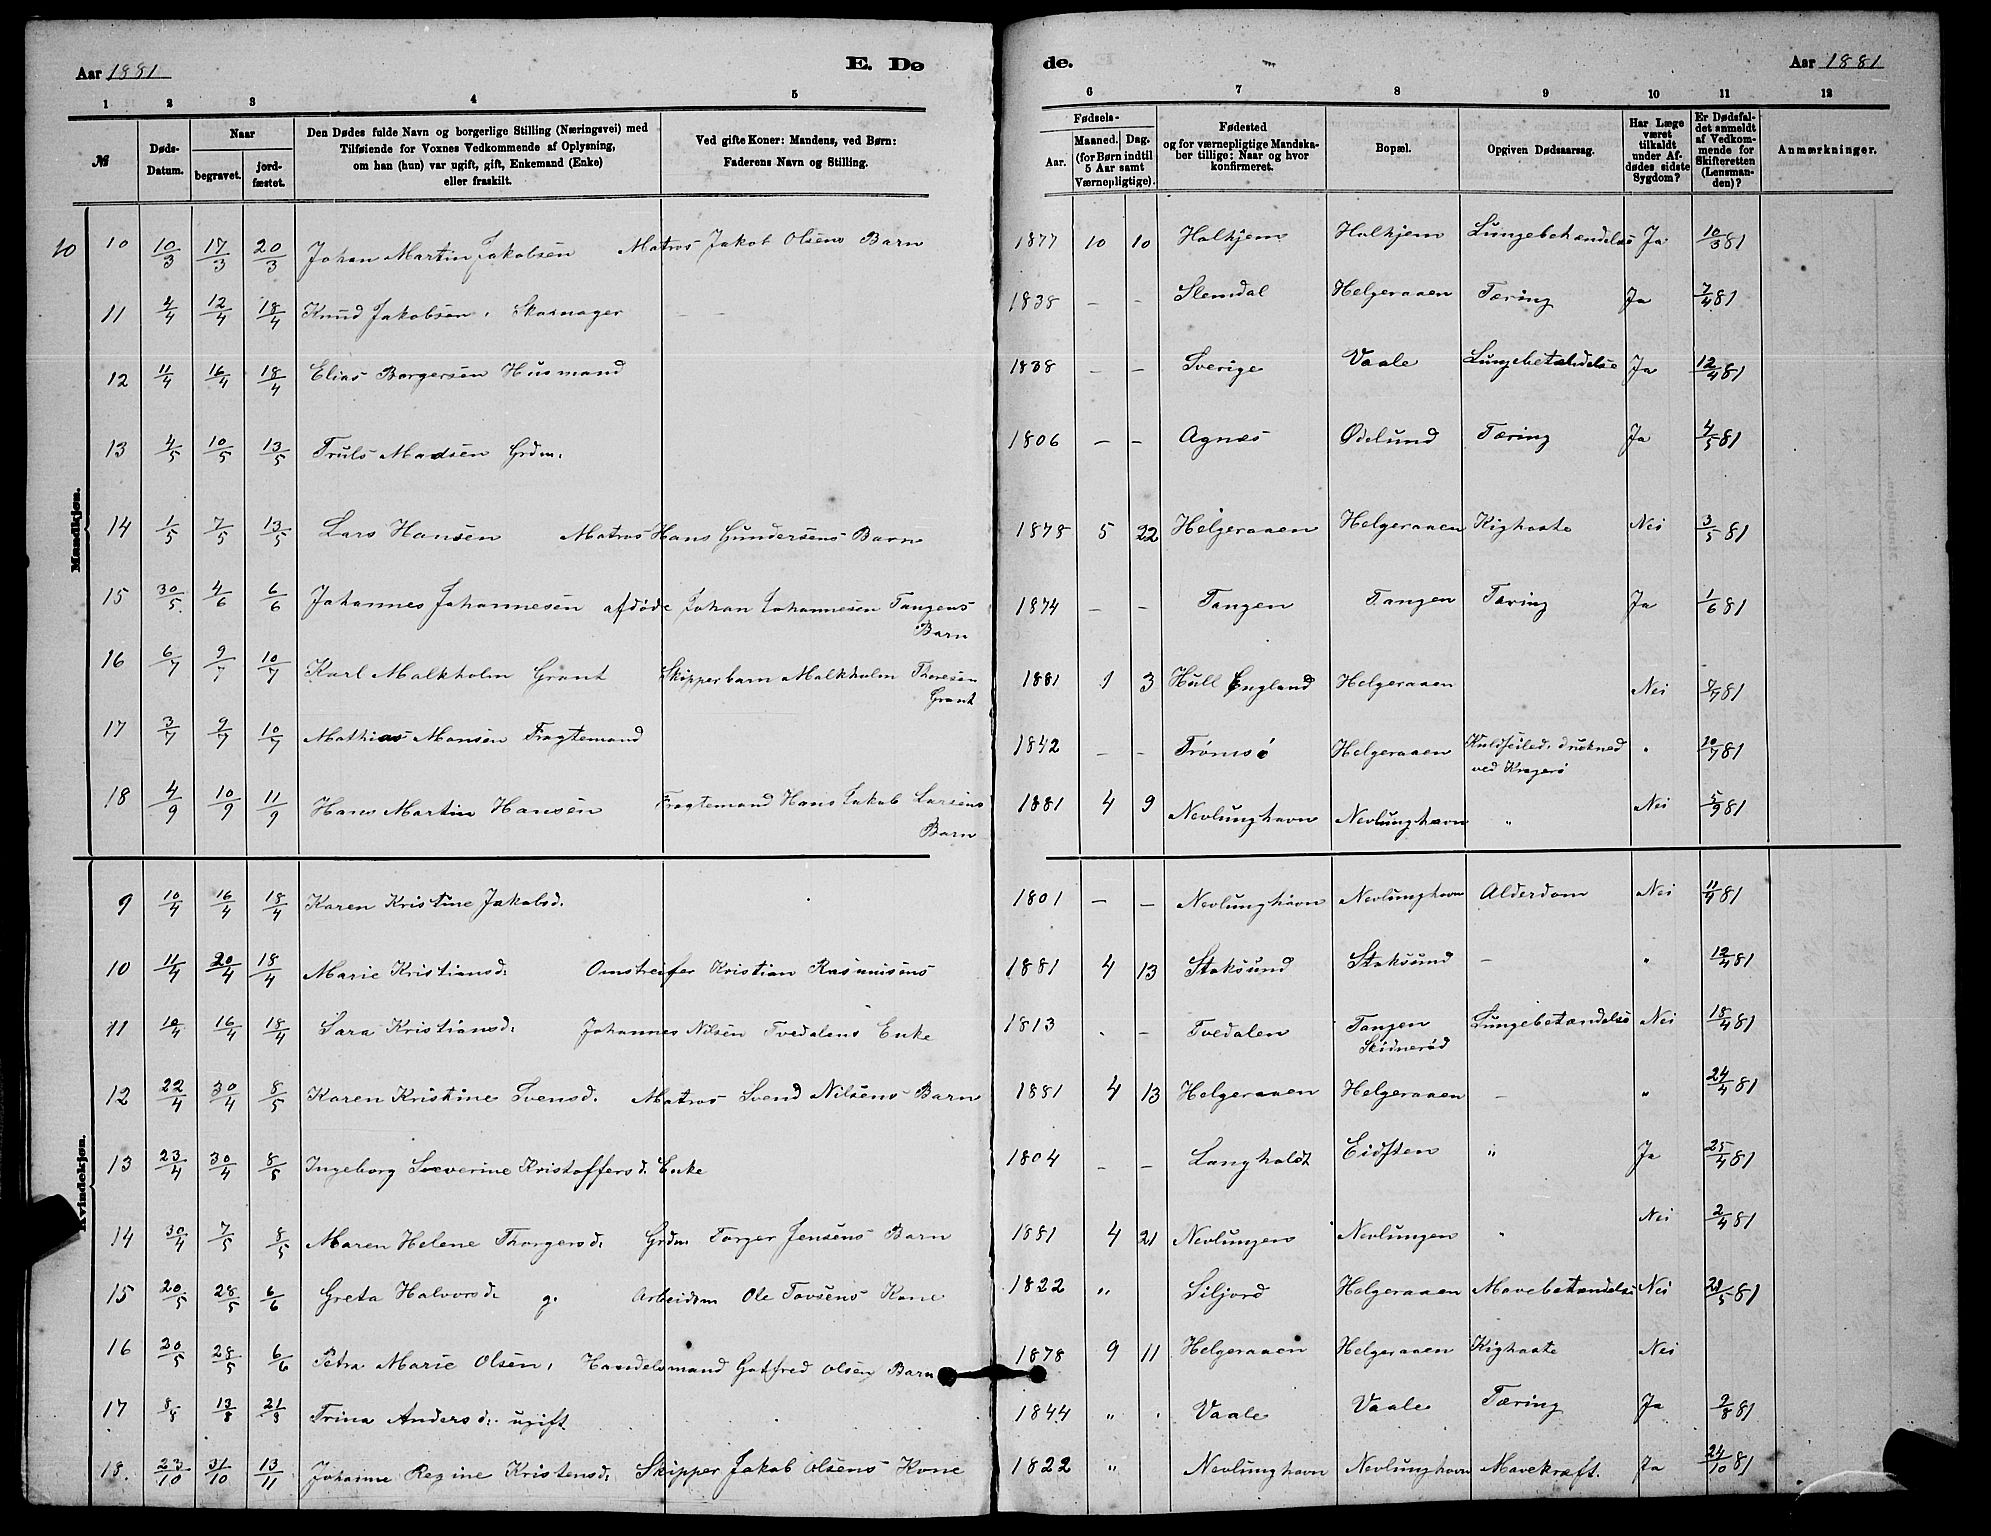 Aar 1881 E. Dø de. Aar 1881
1 2 3 4 5 6 7 8 9 10 11 12
№ Døds-Datum. Naar begravet. jordfæstet. Den Dødes fulde Navn og borgerlige Stilling (Næringsvei) med Tilføiende for Voxnes Vedkommende af Oplysning, om han (hun) var ugift, gift, Enkemand (Enke) eller fraskilt. Ved gifte Koner: Mandens, ved Børn: Faderens Navn og Stilling. Fødsels- Aar. Maaned. Dag. (for Børn indtil 5 Aar samt Værnepligtige). Fødested og for værnepligtige Mandskaber tillige: Naar og hvor konfirmeret. Bopæl. Opgiven Dødsaarsag. Har Læge været tilkaldt under Afdødes sidste Sygdom? Er Dødsfaldet anmeldt af Vedkommende for Skifteretten (Lensmanden)? Anmærkninger.
Mandkjøn.
10 10 10/3 17/3 20/3 Johan Martin Jakobsen Matros Jakob Olsens Barn 1877 10 10 Halhjem Halhjem Lungebetændelse Ja 10/3 81
11 4/4 12/4 18/4 Knud Jakobsen, Skomager 1838 – – Slemdal Helgeraaen Tæring Ja 7/4 81
12 11/4 16/4 18/4 Elias Borgersen Husmand 1838 – – Sverige Vaale Lungebetændelse Ja 12/4 81
13 4/5 10/5 13/5 Truls Madsen Grdm. 1806 – – Agnes Ødelund Tæring Ja 4/5 81
14 1/5 7/5 13/5 Lars Hansen Matros Hans Gundersens Barn 1878 5 22 Helgeraaen Helgeraaen Kighoste Nei 3/5 81
15 30/5 4/6 6/6 Johannes Johannesen afdøde Johan Johannesen Tangens Barn 1874 – – Tangen Tangen Tæring Ja 1/6 81
16 6/7 9/7 10/7 Karl Malkholm Grant Skipperbarn Malkholm Thoresen Grant 1881 1 3 Hull England Helgeraaen Nei 7/7 81
17 3/7 9/7 10/7 Mathias Monsen Fragtemand 1842 – – Tromsø Helgeraaen Kuldseiled. drukned ved Kragerø " 10/7 81
18 4/9 10/9 11/9 Hans Martin Hansen Fragtemand Hans Jakob Larsens Barn 1881 4 9 Nevlunghavn Nevlunghavn " Nei 5/9 81
Kvindekjøn.
9 10/4 16/4 18/4 Karen Kristine Jakobsd. 1801 – – Nevlunghavn Nevlunghavn Alderdom Nei 11/4 81
10 11/4 20/4 18/4 Marie Kristiansd. Omstreifer Kristian Rasmusens 1881 4 13 Staksund Staksund – " 12/4 81
11 10/4 16/4 18/4 Sara Kristiansd. Johannes Nilsen Tvedalens Enke 1813 . – Tvedalen Tangen Skidnerød Lungebetændelse Nei 18/4 81
12 22/4 30/4 8/5 Karen Kristine Svensd. Matros Svend Nilsens Barn 1881 4 13 Helgeraaen Helgeraaen – " 24/4 81
13 23/4 30/4 8/5 Ingeborg Severine Kristoffersd. Enke 1804 – – Langholdt Eidsten " Ja 25/4 81
14 30/4 7/5 8/5 Maren Helene Thorgersd. Grdm Torger Jensens Barn 1881 4 21 Nevlungen Nevlungen " Nei 2/4 81
15 20/5 28/5 6/6 Greta Halvorsd. g. Arbeidsm Ole Tovsens Kone 1822 " Siljord Helgeraaen Mavebetændelse Nei 21/5 81
16 20/5 28/5 6/6 Petra Marie Olsen, Handelsmand Gotfred Olsen Barn 1878 9 11 Helgeraaen Helgeraaen Kighoste Nei
17 8/8 13/8 21/8 Trina Andersd. ugift 1844 " . Vaale Vaale Tæring Ja 9/8 81
18. 23/10 31/10 13/11 Johanne Regine Kristensd. Skipper Jakob Olsens Kone 1822 " Nevlunghavn Nevlunghavn Mavekræft. Ja 24/10 81